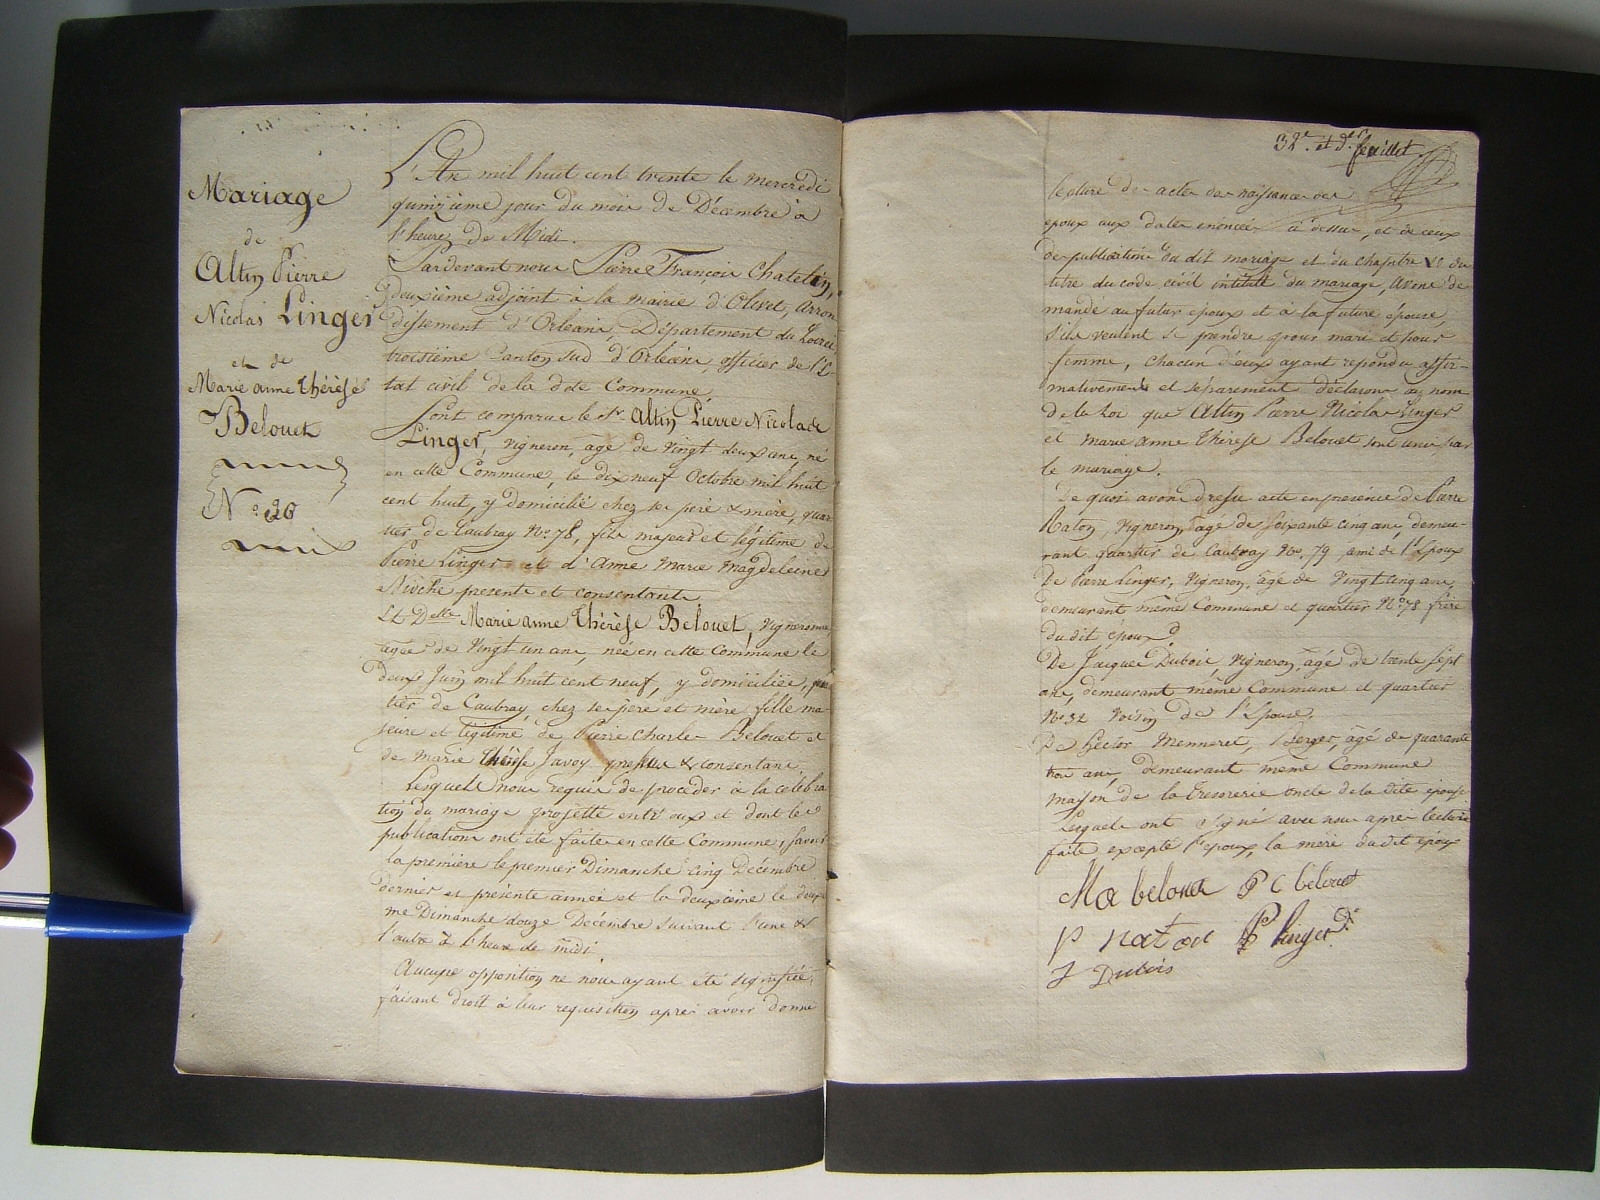 Mariage
de
Altin Pierre
Nicolas Linger
et de
Marie anne thérèse
Belouet
N.º 20
L'An mil huit cent trente le mercredi
quinzieme jour du mois de Décembre à
l'heure de Midi.
Pardevant nous Pierre François Chatelain,
deuxième adjoint à la mairie d'Olivet, Arron
dissement d'Orleans, Département du Loiret
troisième Canton sud d'Orléans, officier de l'E-
tat civil de la dite Commune,
Sont comparus le Sr. Altin Pierre Nicolas de
Linger, vigneron, agé de vingt deux ans, né
en cette Commune, le dix neuf Octobre mil huit
cent huit, y domicilié chez ses père & mère, quar
tier de Caubray No. 78, fils majeur et légitime de
Pierre Linger et d'Anne Marie Magdeleine
Rioche presente et consentante
Et Delle Marie anne Thérèse Belouet, vigneronne,
agée de vingt un ans, née en cette Commune le
deux Juin mil huit cent neuf, y domiciliée,
tier de Caubray, chez ses pere et mère fille ma-
jeure et légitime de Pierre Charles Belouet et
de marie thérèse Javoy presens & consentans,
Lesquels nous requis de procéder à la célébra
tion du mariage projetté entr'eux et dont les
publications ont été faites en cette Commune, savoir
la première le premier Dimanche cinq Décembre
dernier es présente année et la deuxième le deuxiè
me Dimanche douze Décembre suivant l'une &
l'autre à l'heure de midi
Aucune opposition ne nous ayant été signifiée,
faisant droit à leur requisition après avoir donné
32e. et der. feuillet
lecture des actes de naissance des
epoux aux dates énoncées ci dessus, et de ceux
de publications du dit mariage et du chapitre VI du
titre du code civil intitulé du mariage, Avons de-
mandé au futur époux et à la future épouse,
s'ils veulent se prendre pour mari et pour
femme, chacun d'eux ayant repondu affir-
mativement et séparement déclarons au nom
de la loi que Altin Pierre Nicolas Linger
et marie anne thérèse Belouet sont unis par
le mariage.
De quoi avons dressé acte en présence de Pierre
Raton, vigneron, agé de soixante cinq ans, demeu-
rant quartier de Caubray No. 79 ami de l'Epoux
De Pierre Linger, vigneron, agé de vingt cinq ans,
demeurant même Commune et quartier No. 78 frère
du dit époux
De Jacques Dubois, vigneron, agé de trente sept
ans, demeurant même Commune et quartier
No. 32 voisin de l'Epouse,
De hector Menneret, Berger, agé de quarante
trois ans, demeurant même Commune
maison de la tresorerie oncle de la dite epouse
Lesquels ont signé avec nous après lecture
faite excepté l'epoux, la mère du dit époux
Ma belouet P C belouet
P Raton P linger
J Dubois